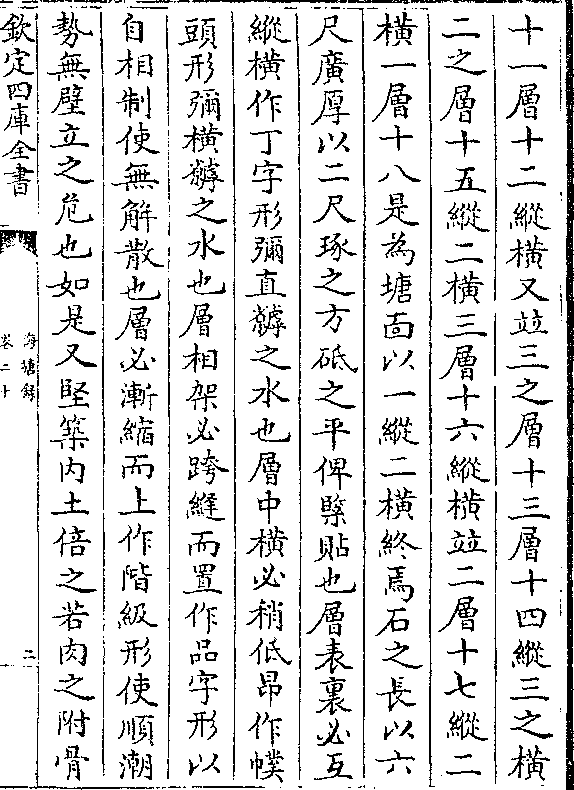 十一層十二縱橫又竝三之層十三層十四縱三之橫
二之層十五縱二橫三層十六縱橫竝二層十七縱二
橫一層十八是為塘面以一縱二橫終焉石之長以六
尺廣厚以二尺琢之方砥之平俾緊貼也層表裏必互
縱橫作丁字形彌直罅之水也層中橫必稍低昂作幞
頭形彌橫罅之水也層相架必跨縫而置作品字形以
自相制使無解散也層必漸縮而上作階級形使順潮
勢無壁立之危也如是又堅築內土倍之若肉之附骨
欽定四庫全書
海塘錄
卷二十
二